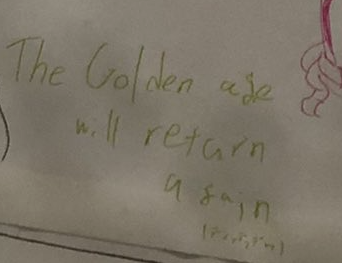 The Golden age
will return
again